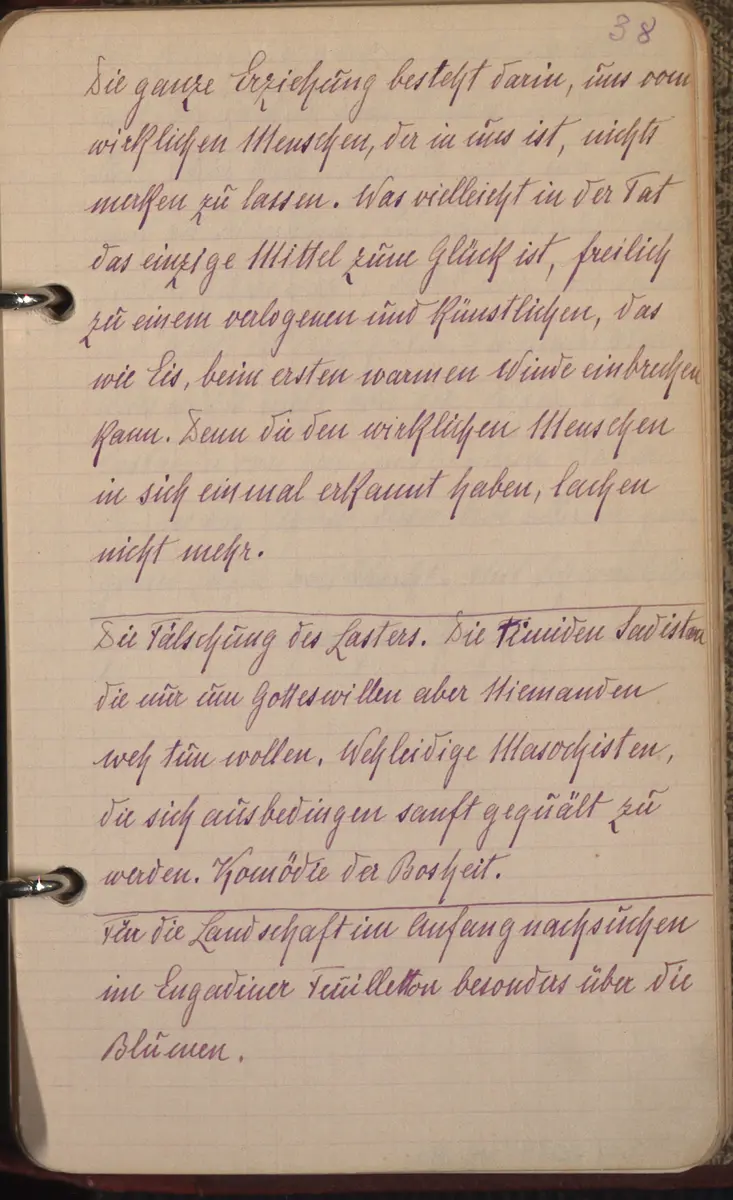 38
Die ganze Erziehung besteht darin, uns vom
wirklichen Menschen, der in uns ist, nichts
merken zu lassen. Was vielleicht in der Tat
das einzige Mittel zum Glück ist, freilich
zu einem verlogenen und künstlichen, das
wie Eis, beim ersten warmen Winde einbrechen
kann. Denn die den wirklichen Menschen
in sich einmal erkannt haben, lachen
nicht mehr.
Die Fälschung des Lasters. Die timiden Sadisten
die nur um Gotteswillen aber Niemanden
weh tun wollen. Wehleidige Masochisten,
die sich ausbedingen sanft gequält zu
werden. Komödie der Bosheit.
Für die Landschaft im Anfang nachsuchen
im Engadiner Feuilleton besonders über die
Blumen.